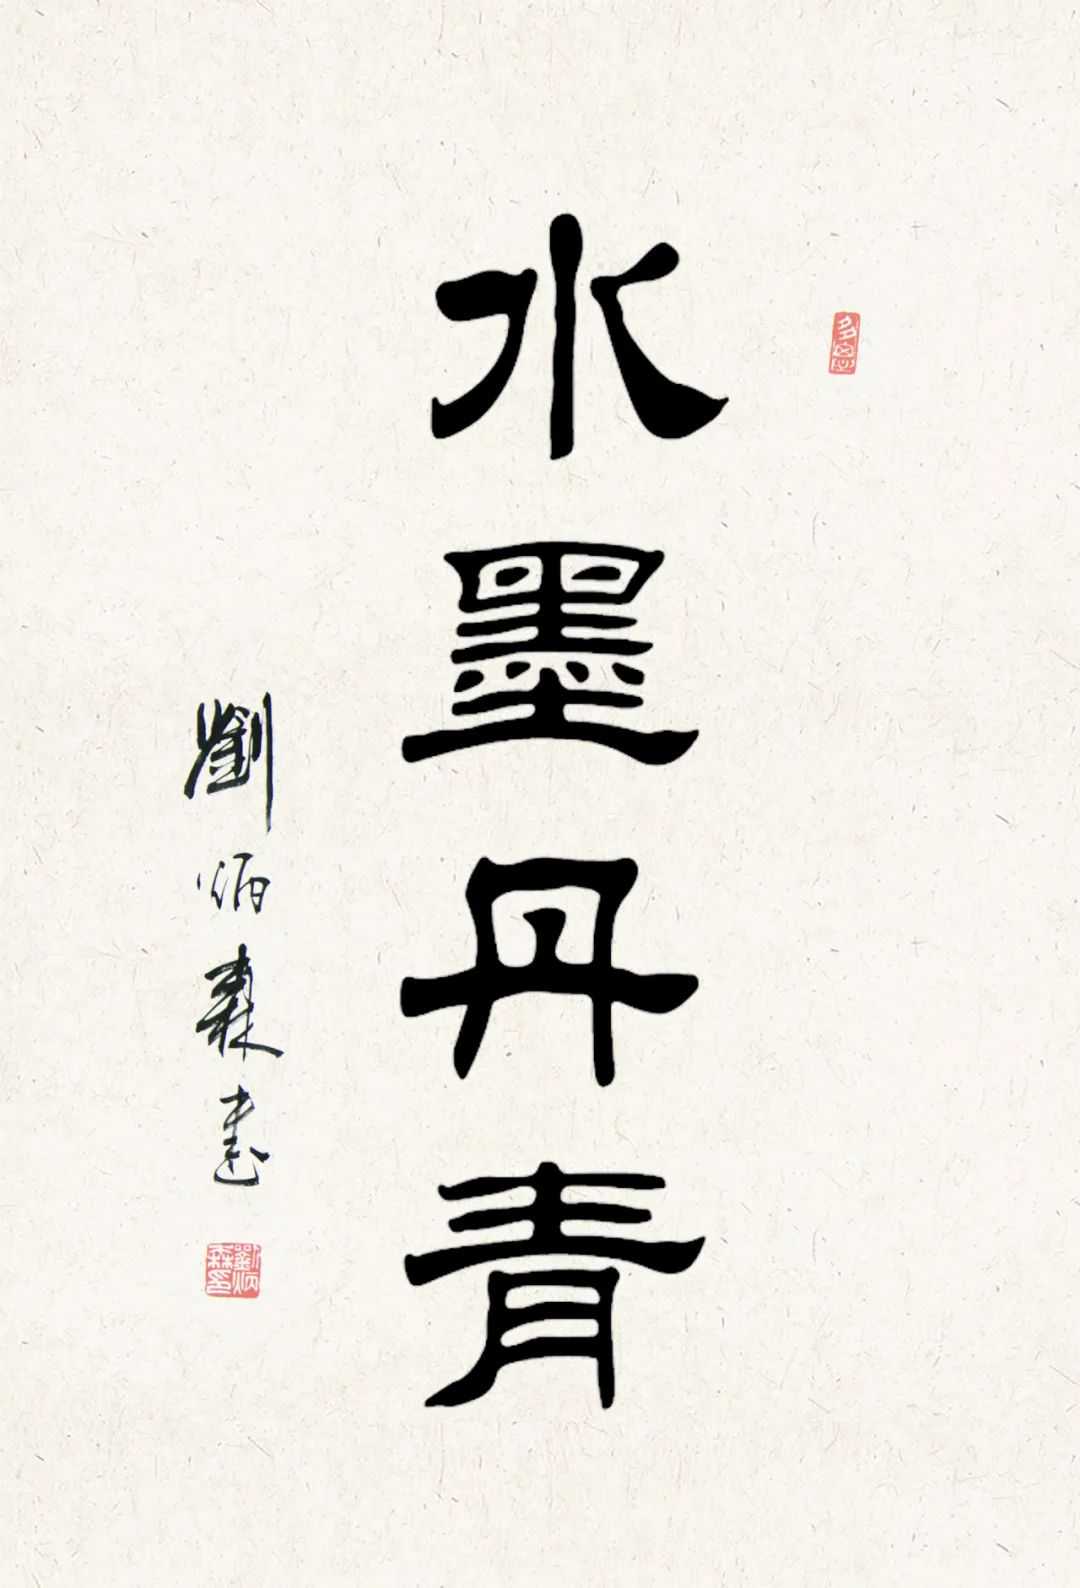 水墨丹青
劉炳森書
劉炳森印